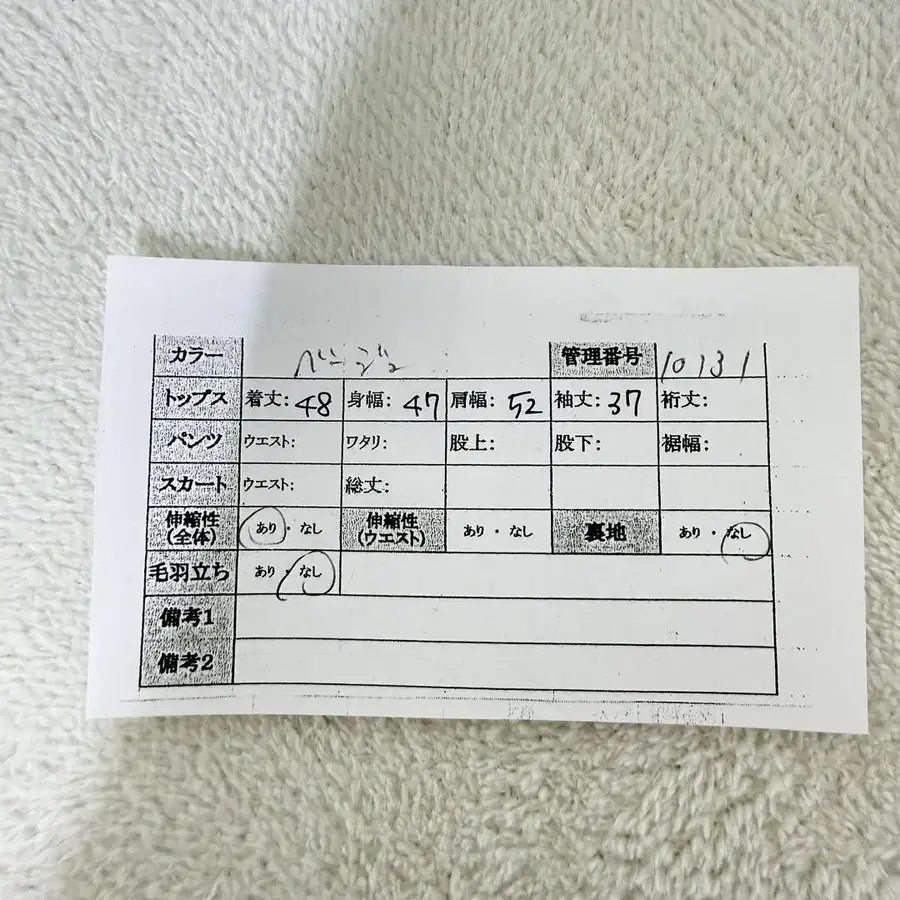 カラー ベージュ 管理番号 10131
トップス 着丈: 48 身幅: 47 肩幅: 52 袖丈: 37 裄丈:
パンツ ウエスト: ワタリ: 股上: 股下: 裾幅:
スカート ウエスト: 総丈:
伸縮性(全体) あり・なし 伸縮性(ウエスト) あり・なし 裏地 あり・なし
毛羽立ち あり・なし
備考1
備考2